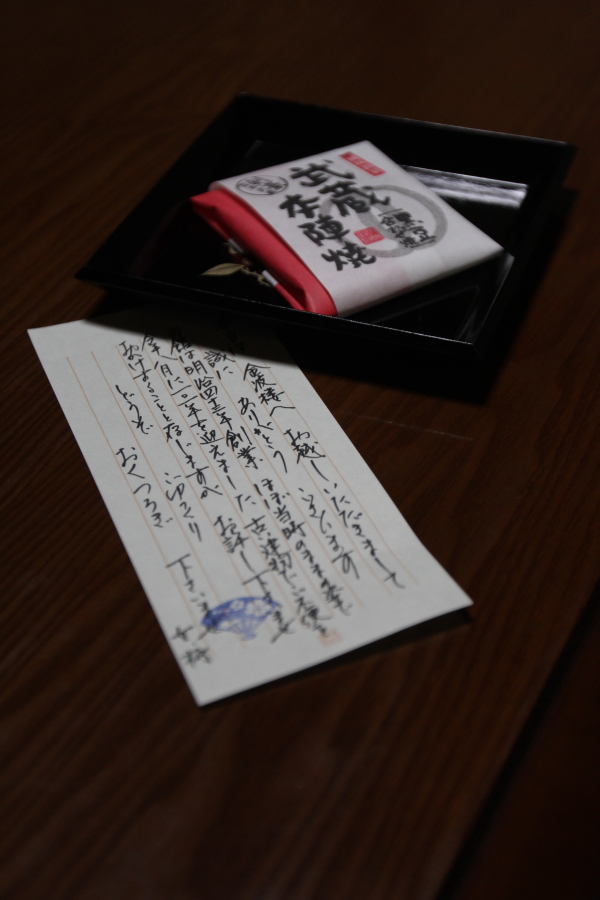 武蔵
本陣焼
金波楼へ お越しいただきまして
誠に ありがとうございます
館は明治四十三年創業 ほぼ当時のままの姿で
今年八月に一〇一年を迎えました 古い建物でご不便を
おかけすることと存じますが お許し下さいませ
どうぞ ごゆっくり
おくつろぎ 下さいませ
女将